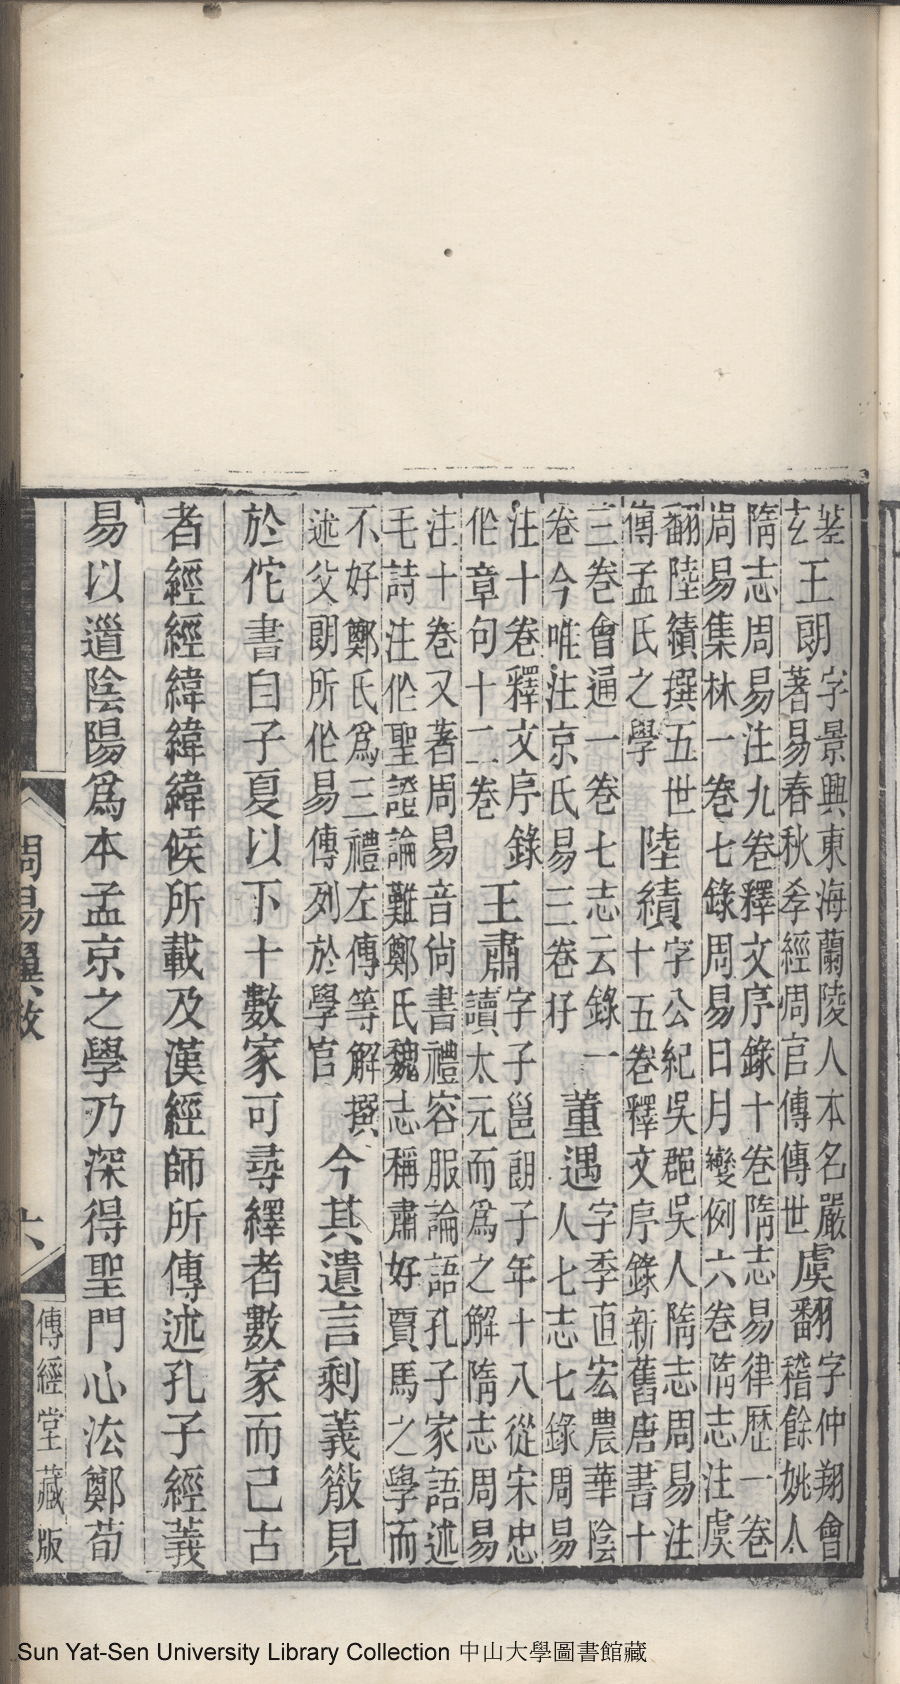 基
玄
王朗
字景興東海蘭陵人本名嚴
著易春秋孝經周官傳傳世
虞翻
字仲翔會
稽餘姚人
隋志周易注九卷釋文序錄十卷隋志易律歷一卷
周易集林一卷七錄周易日月變例六卷隋志注虞
翻陸績撰五世
傳孟氏之學
陸績
字公紀吳郡吳人隋志周易注
十五卷釋文序錄新舊唐書十
三卷會通一卷七志云錄一
卷今唯注京氏易三卷存
董遇
字季直宏農華陰
人七志七錄周易
注十卷釋文序錄
作章句十二卷
王肅
字子邕朗子年十八從宋忠
讀太元而爲之解隋志周易
注十卷又著周易音尙書禮容服論語孔子家語述
毛詩注作聖證論難鄭氏魏志稱肅好賈馬之學而
不好鄭氏爲三禮左傳等解撰
述父朗所作易傳列於學官
今其遺言剩義散見
於佗書自子夏以下十數家可尋繹者數家而已古
者經經緯緯緯候所載及漢經師所傳述孔子經義
易以道陰陽爲本孟京之學乃深得聖門心法鄭荀
周易
六
傳經堂藏版
Sun Yat-Sen University Library Collection 中山大學圖書館藏